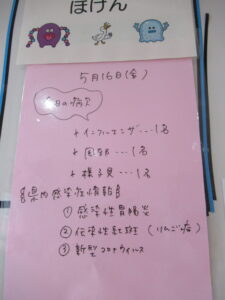 ほけん
5月16日(金)
今日の病欠
インフルエンザ…1名
風邪…1名
様子見…1名
県内感染症情報
① 感染性胃腸炎
② 伝染性紅斑 (りんご病)
③ 新型コロナウイルス